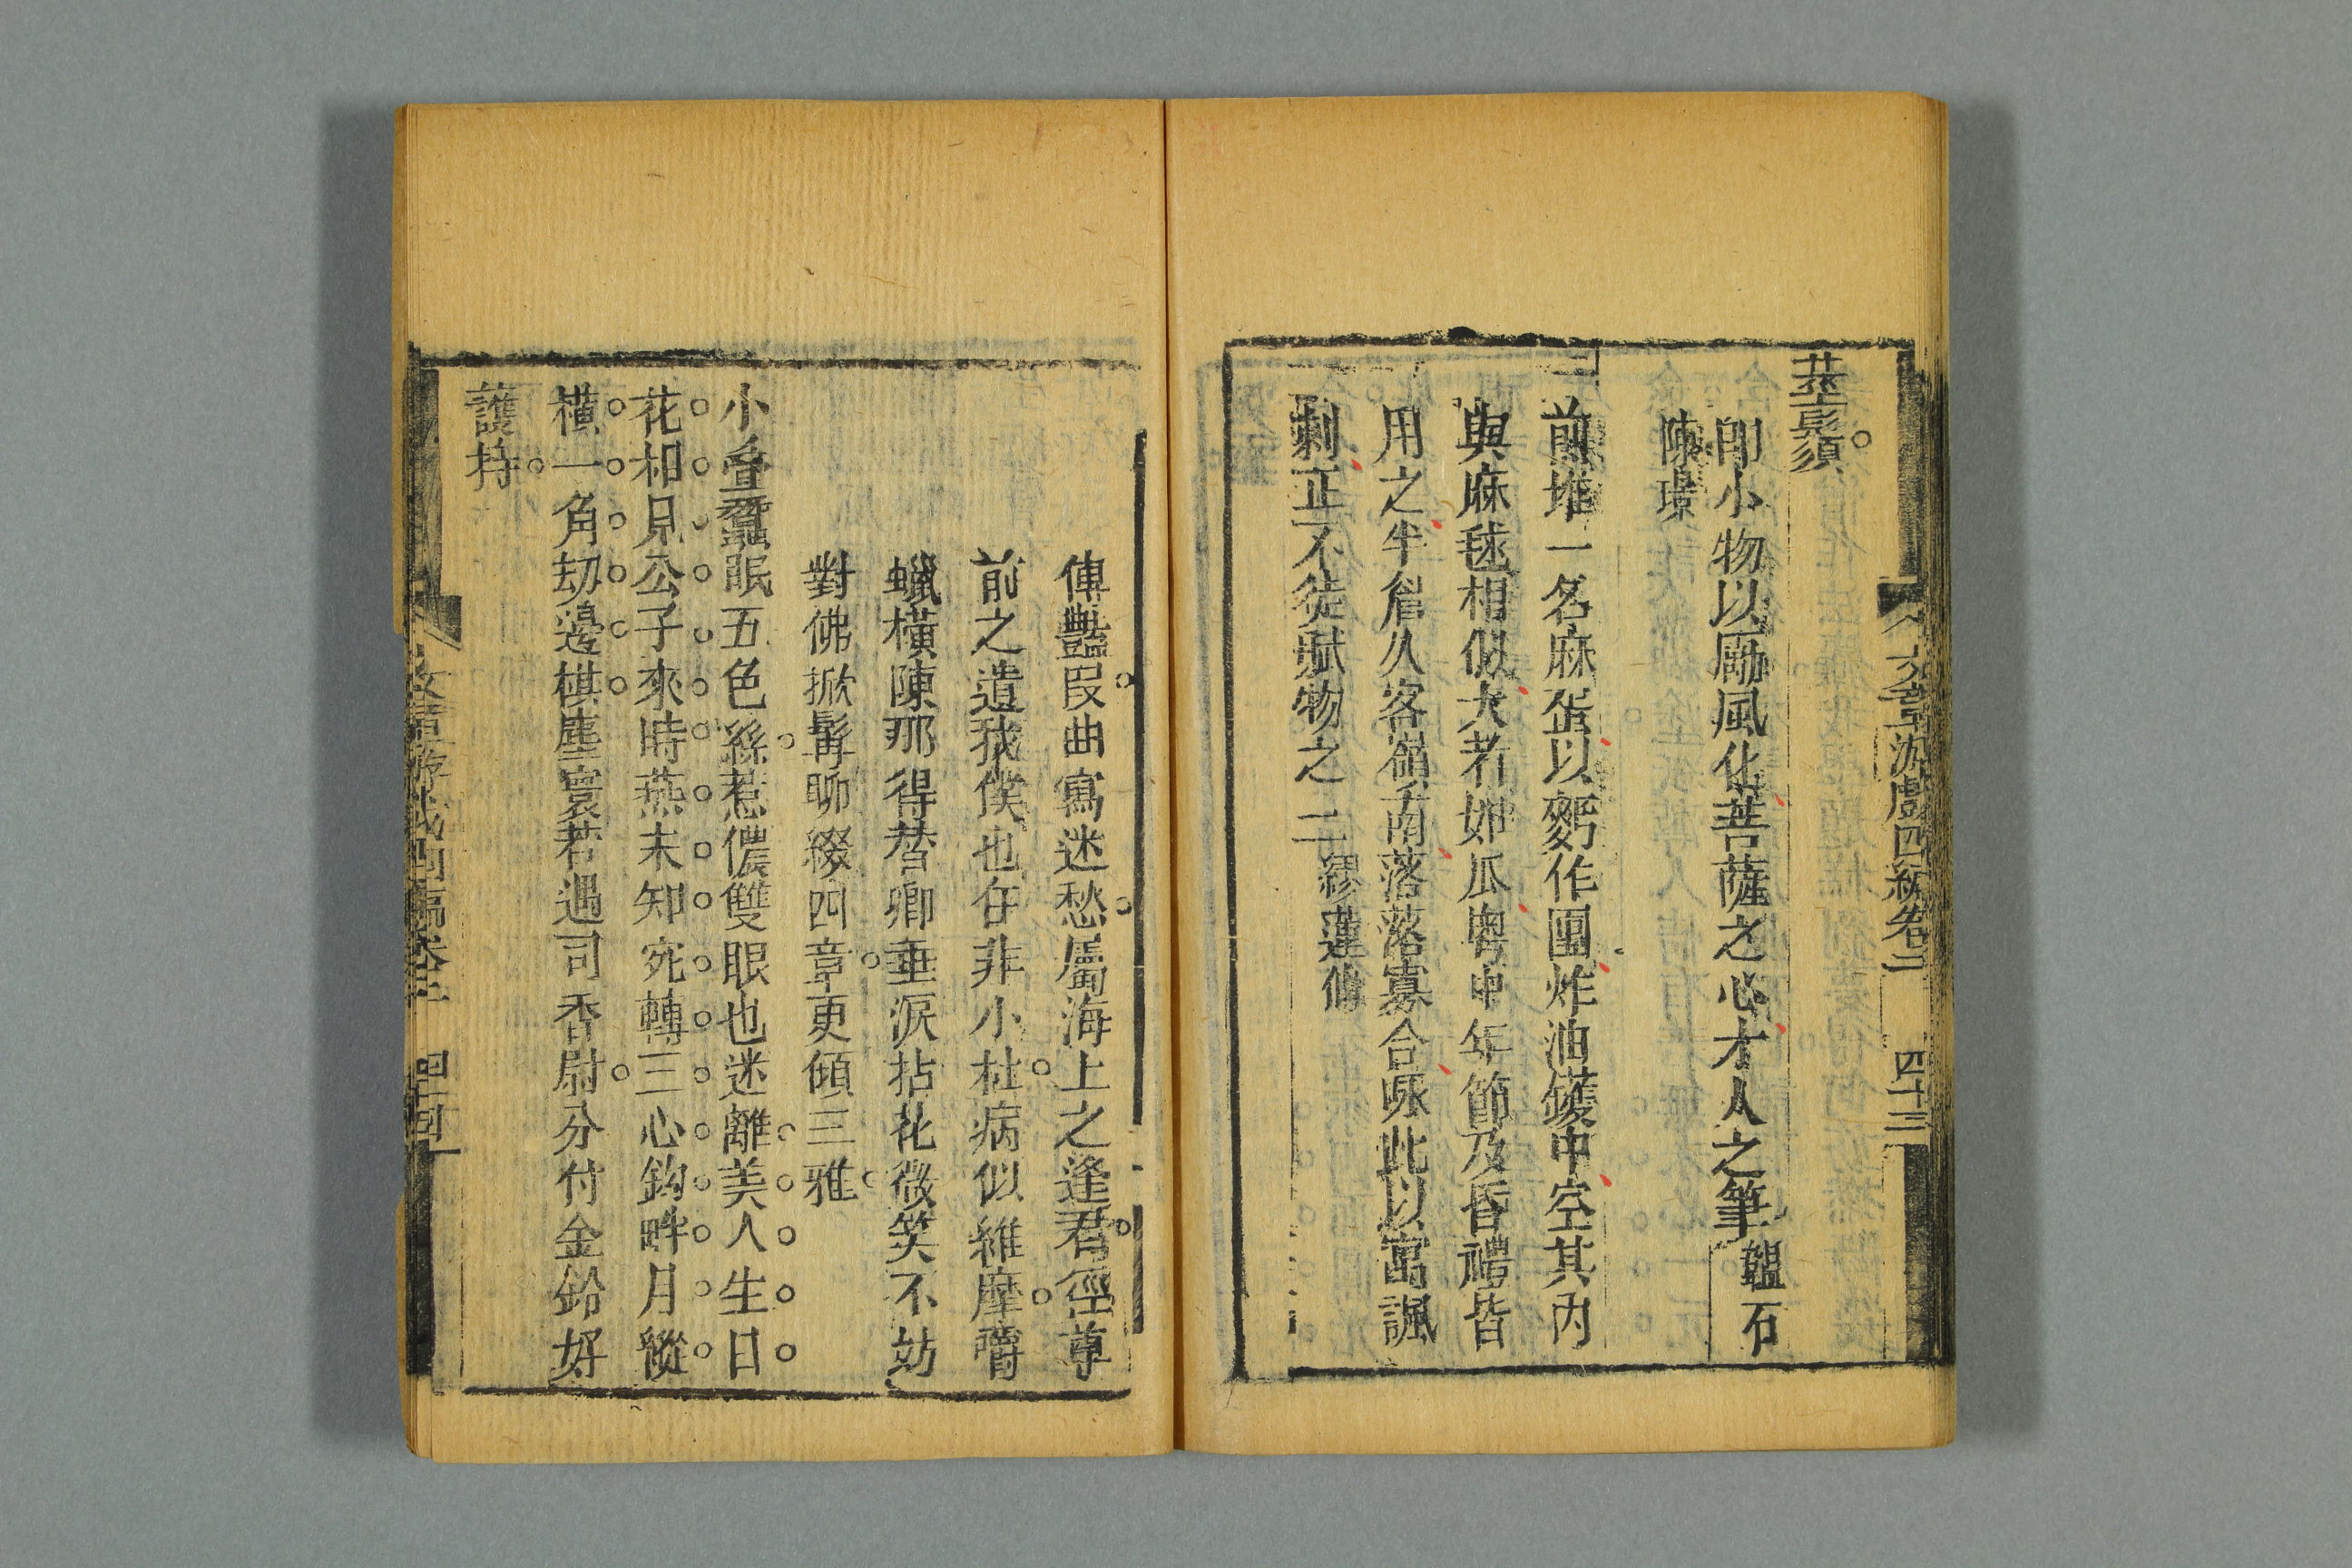 文章游戲四編卷二 四十三
莖髭須
即小物以勵風化菩薩之心才人之筆韞石
陳璟
煎堆一名麻蛋以麪作團炸油鑊中空其內
與麻毬相似大者如瓜粤中年節及昏禮皆
用之牟眉久客嶺南落落寡合咏此以寓諷
刺正不徒賦物之工繆蓮仙
傳豔叚曲寫迷愁屬海上之逢君徑尊
前之遺我僕也年非小杜病似維摩嚼
蠟橫陳那得替卿垂淚拈花微笑不妨
對佛掀髯聊綴四章更傾三雅
小叠蠶眠五色絲惹儂雙眼也迷離美人生日
花相見公子來時燕未知宛轉三心鈎畔月縱
橫一角刼邊棋塵寰若遇司香尉分付金鈴好
護持
文章游戲四編卷二 四十四